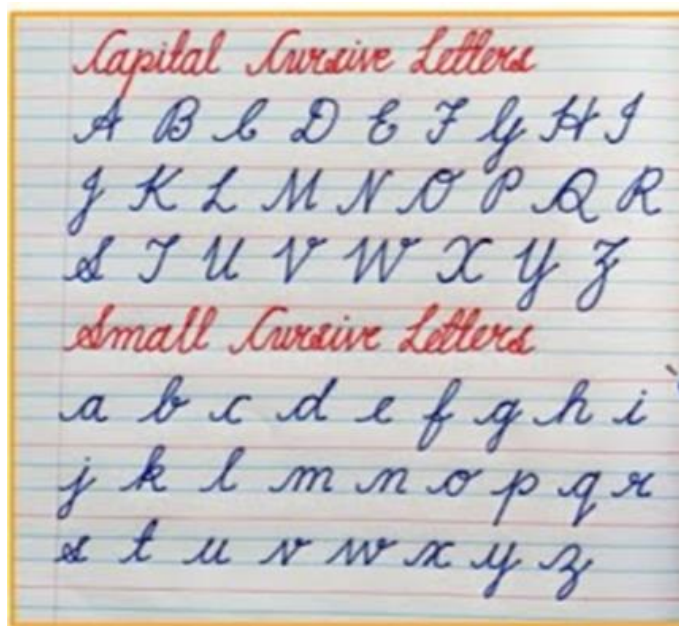 Capital Cursive Letters
A B C D E F G H I
J K L M N O P Q R
S T U V W X Y Z
Small Cursive Letters
a b c d e f g h i
j k l m n o p q r
s t u v w x y z